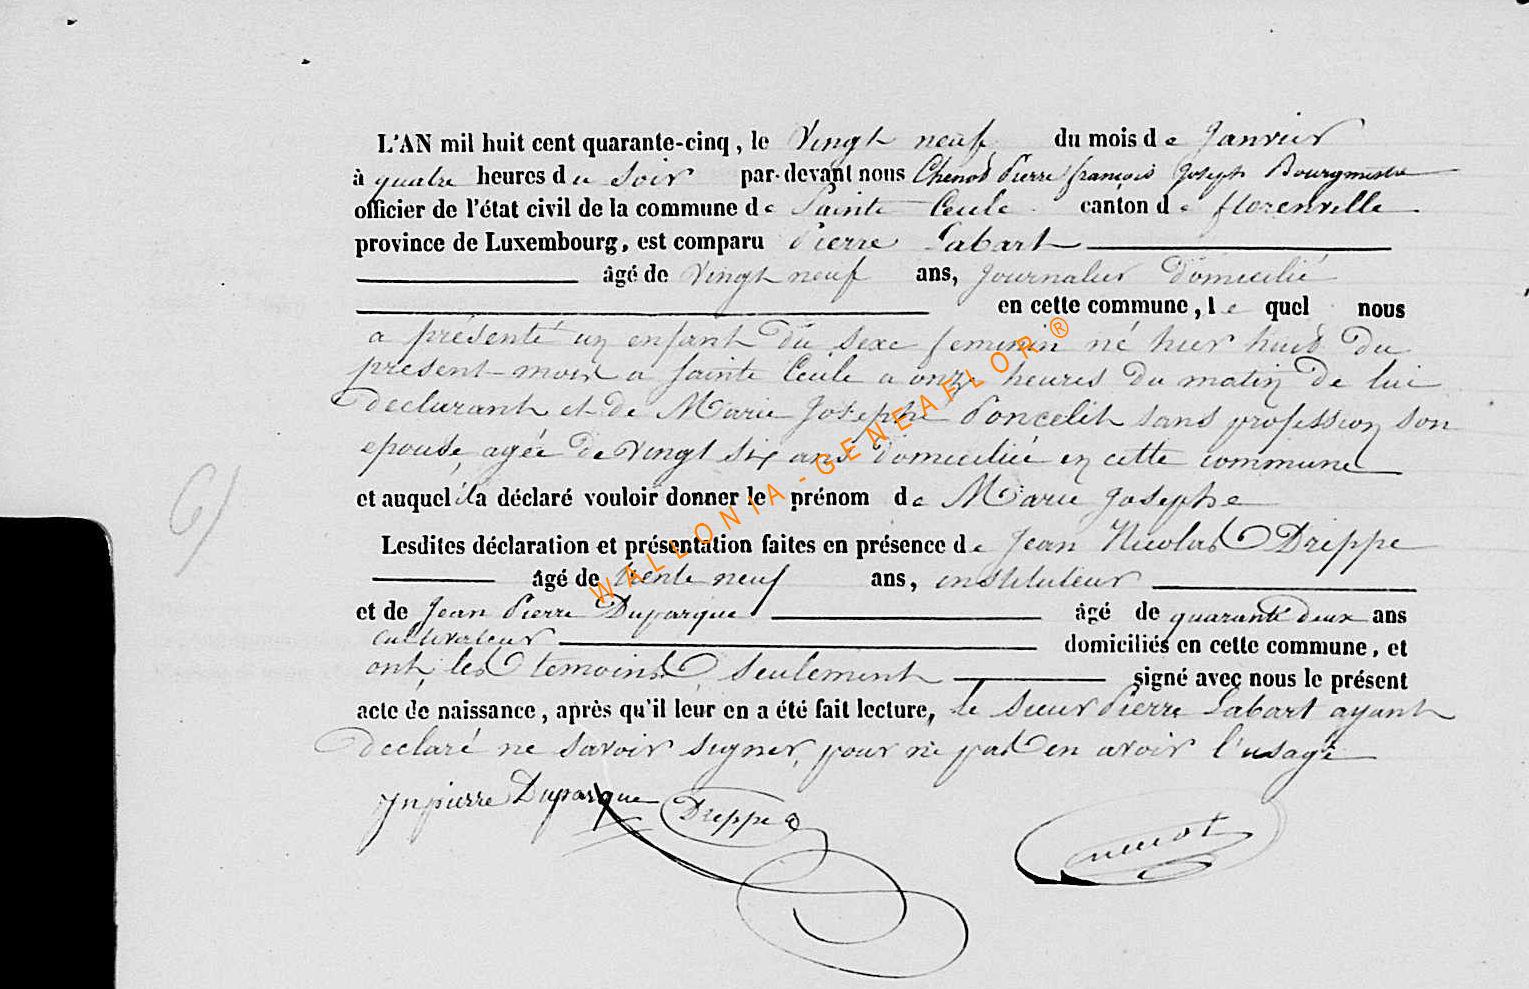 L'AN mil huit cent quarante-cinq, le Vingt neuf du mois de Janvier
à quatre heures du Soir par-devant nous Chenot Pierre françois Joseph Bourgmestre
officier de l'état civil de la commune de Sainte Cecile canton de florenville
province de Luxembourg, est comparu Pierre Labart
âgé de Vingt neuf ans, Journalier domicilié
en cette commune, le quel nous
a présenté un enfant du sexe feminin né hier huit du
present mois a sainte Cecile a onze heures du matin de lui
declarant et de Marie Josephe Poncelet sans profession son
epouse, agée de vingt six ans domiciliée en cette commune
et auquel il a déclaré vouloir donner le prénom de Marie Josephe
Lesdites déclaration et présentation faites en présence de Jean Nicolas Dreppe
âgé de trente neuf ans, instituteur
et de Jean Pierre Duparque âgé de quarante deux ans
cultivateur domiciliés en cette commune, et
ont, les temoins seulement signé avec nous le présent
acte de naissance, après qu'il leur en a été fait lecture, le sieur Pierre Labart ayant
declaré ne savoir signer, pour ne pas en avoir l'usage
Jnpierre Duparque Dreppe Chenot
6)
WALLONIA-GENEAFLOR®